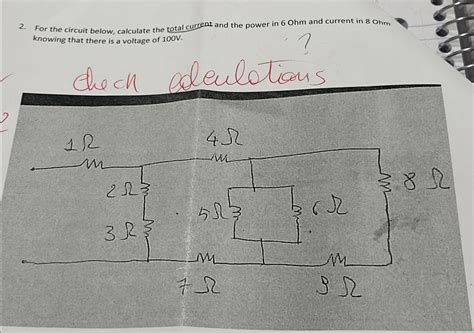 2. For the circuit below, calculate the total current and the power in 6 Ohm and current in 8 Ohm
knowing that there is a voltage of 100V.
?
check calculations
1Ω
4Ω
2Ω
8 Ω
5Ω
6Ω
3Ω
7Ω
9Ω